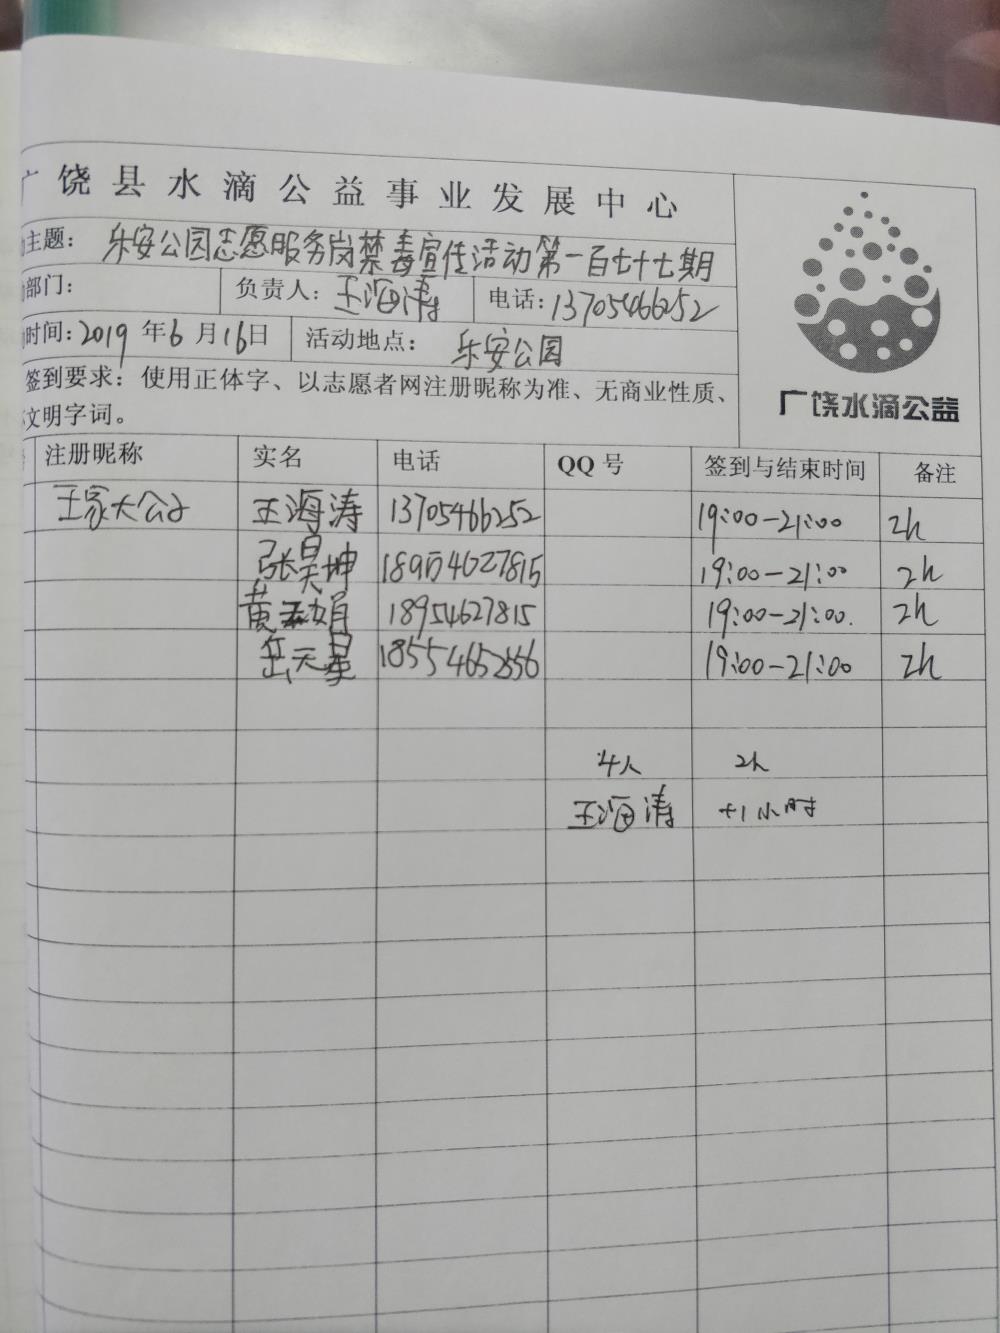 饶县水滴公益事业发展中心
主题: 乐安公园志愿服务岗禁毒宣传活动第一百七十七期
部门: 负责人: 王海涛 电话: 13705466252
时间: 2019 年 6 月 16 日 活动地点: 乐安公园
签到要求: 使用正体字、以志愿者网注册昵称为准、无商业性质、
文明字词。
广饶水滴公益
注册昵称 实名 电话 QQ 号 签到与结束时间 备注
王家大公子 王海涛 13705466252 19:00-21:00 2h
张昊坤 18954627815 19:00-21:00 2h
黄 娟 18954627815 19:00-21:00. 2h
岳天星 19:00-21:00 2h
4人 2h
王海涛 +1小时